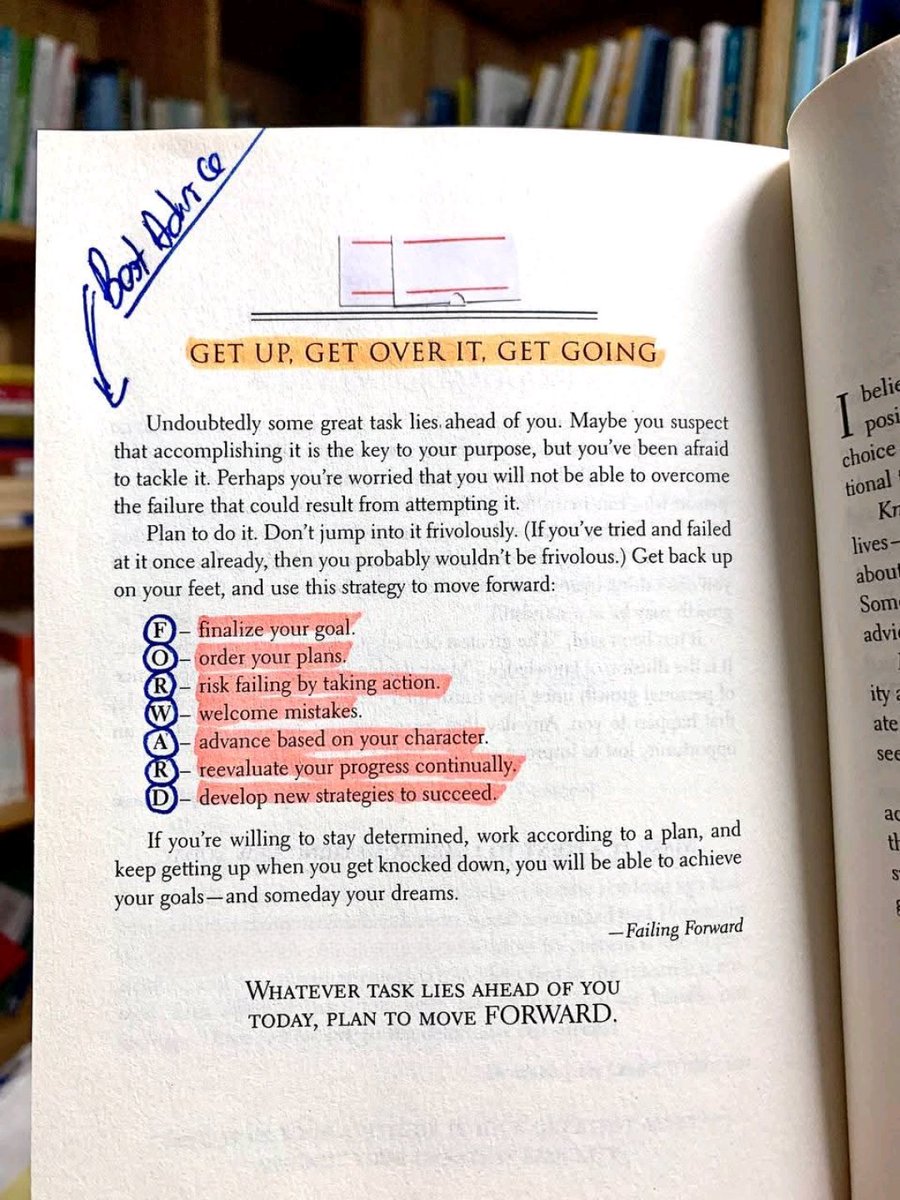 Best Advice
GET UP, GET OVER IT, GET GOING
Undoubtedly some great task lies ahead of you. Maybe you suspect
that accomplishing it is the key to your purpose, but you've been afraid
to tackle it. Perhaps you're worried that you will not be able to overcome
the failure that could result from attempting it.
Plan to do it. Don't jump into it frivolously. (If you've tried and failed
at it once already, then you probably wouldn't be frivolous.) Get back up
on your feet, and use this strategy to move forward:
F – finalize your goal.
O – order your plans.
R – risk failing by taking action.
W – welcome mistakes.
A – advance based on your character.
R – reevaluate your progress continually.
D – develop new strategies to succeed.
If you're willing to stay determined, work according to a plan, and
keep getting up when you get knocked down, you will be able to achieve
your goals—and someday your dreams.
—Failing Forward
WHATEVER TASK LIES AHEAD OF YOU
TODAY, PLAN TO MOVE FORWARD.
I
choice
lives—
about